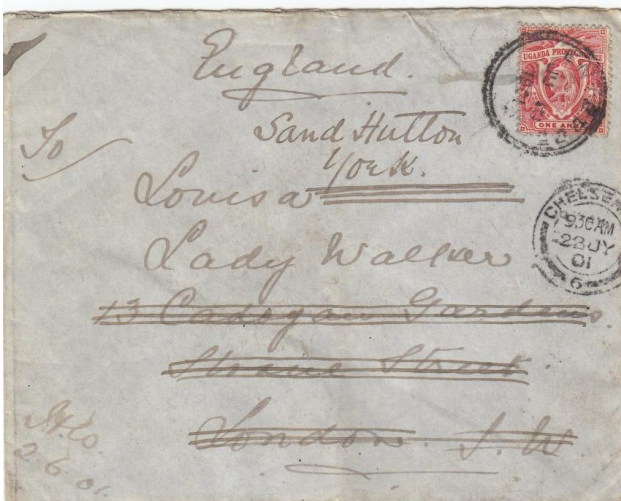 England.
To
Sand Hutton
York.
Louisa
Lady Walker
13 Cadogan Gardens.
Sloane Street.
London. S.W.
2.6.01.
UGANDA PROT
ONE AN
CHELSEA
9.30AM
28 JY
01
6